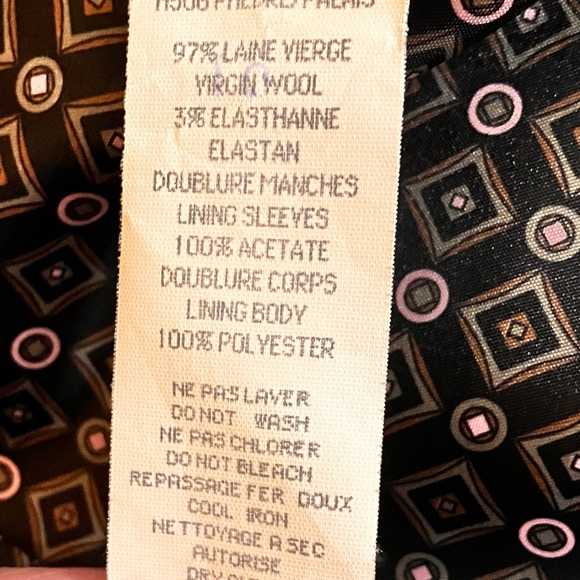 97% LAINE VIERGE
VIRGIN WOOL
3% ELASTHANNE
ELASTAN
DOUBLURE MANCHES
LINING SLEEVES
100% ACETATE
DOUBLURE CORPS
LINING BODY
100% POLYESTER
NE PAS LAVER
DO NOT WASH
NE PAS CHLORER
DO NOT BLEACH
REPASSAGE FER DOUX
COOL IRON
NETTOYAGE A SEC
AUTORISE
DRY